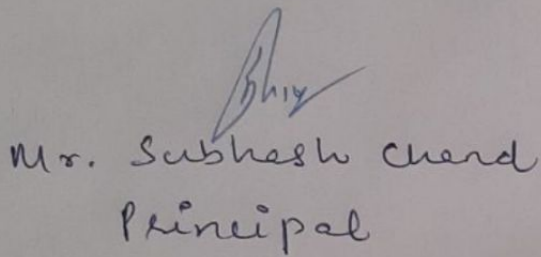 Mr. Subhash Chand
Principal